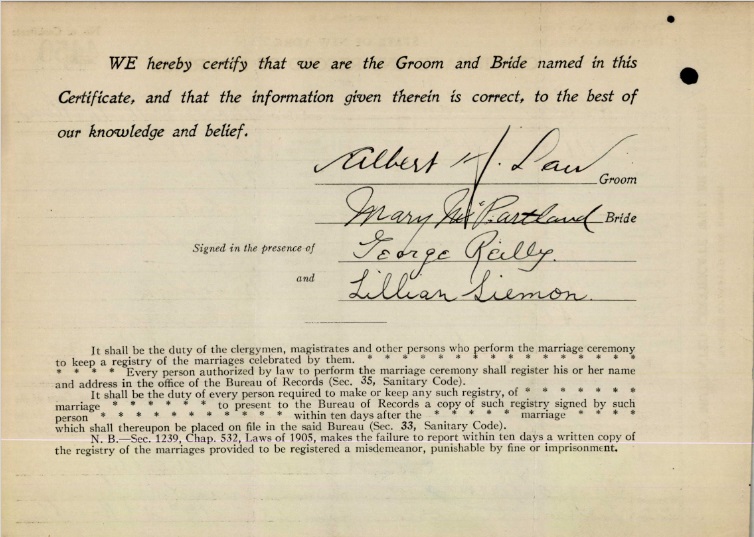 WE hereby certify that we are the Groom and Bride named in this
Certificate, and that the information given therein is correct, to the best of
our knowledge and belief.
Albert H. Law Groom
Mary McPartland Bride
Signed in the presence of George Reilly.
and Lillian Siemon.
It shall be the duty of the clergymen, magistrates and other persons who perform the marriage ceremony
to keep a registry of the marriages celebrated by them. * * * * * * * * * * * * * * * *
* * * * Every person authorized by law to perform the marriage ceremony shall register his or her name
and address in the office of the Bureau of Records (Sec. 35, Sanitary Code).
It shall be the duty of every person required to make or keep any such registry, of * * * * * * *
marriage * * * * * * to present to the Bureau of Records a copy of such registry signed by such
person * * * * * * * * * * * within ten days after the * * * * * marriage * * * *
which shall thereupon be placed on file in the said Bureau (Sec. 33, Sanitary Code).
N. B.—Sec. 1239, Chap. 532, Laws of 1905, makes the failure to report within ten days a written copy of
the registry of the marriages provided to be registered a misdemeanor, punishable by fine or imprisonment.